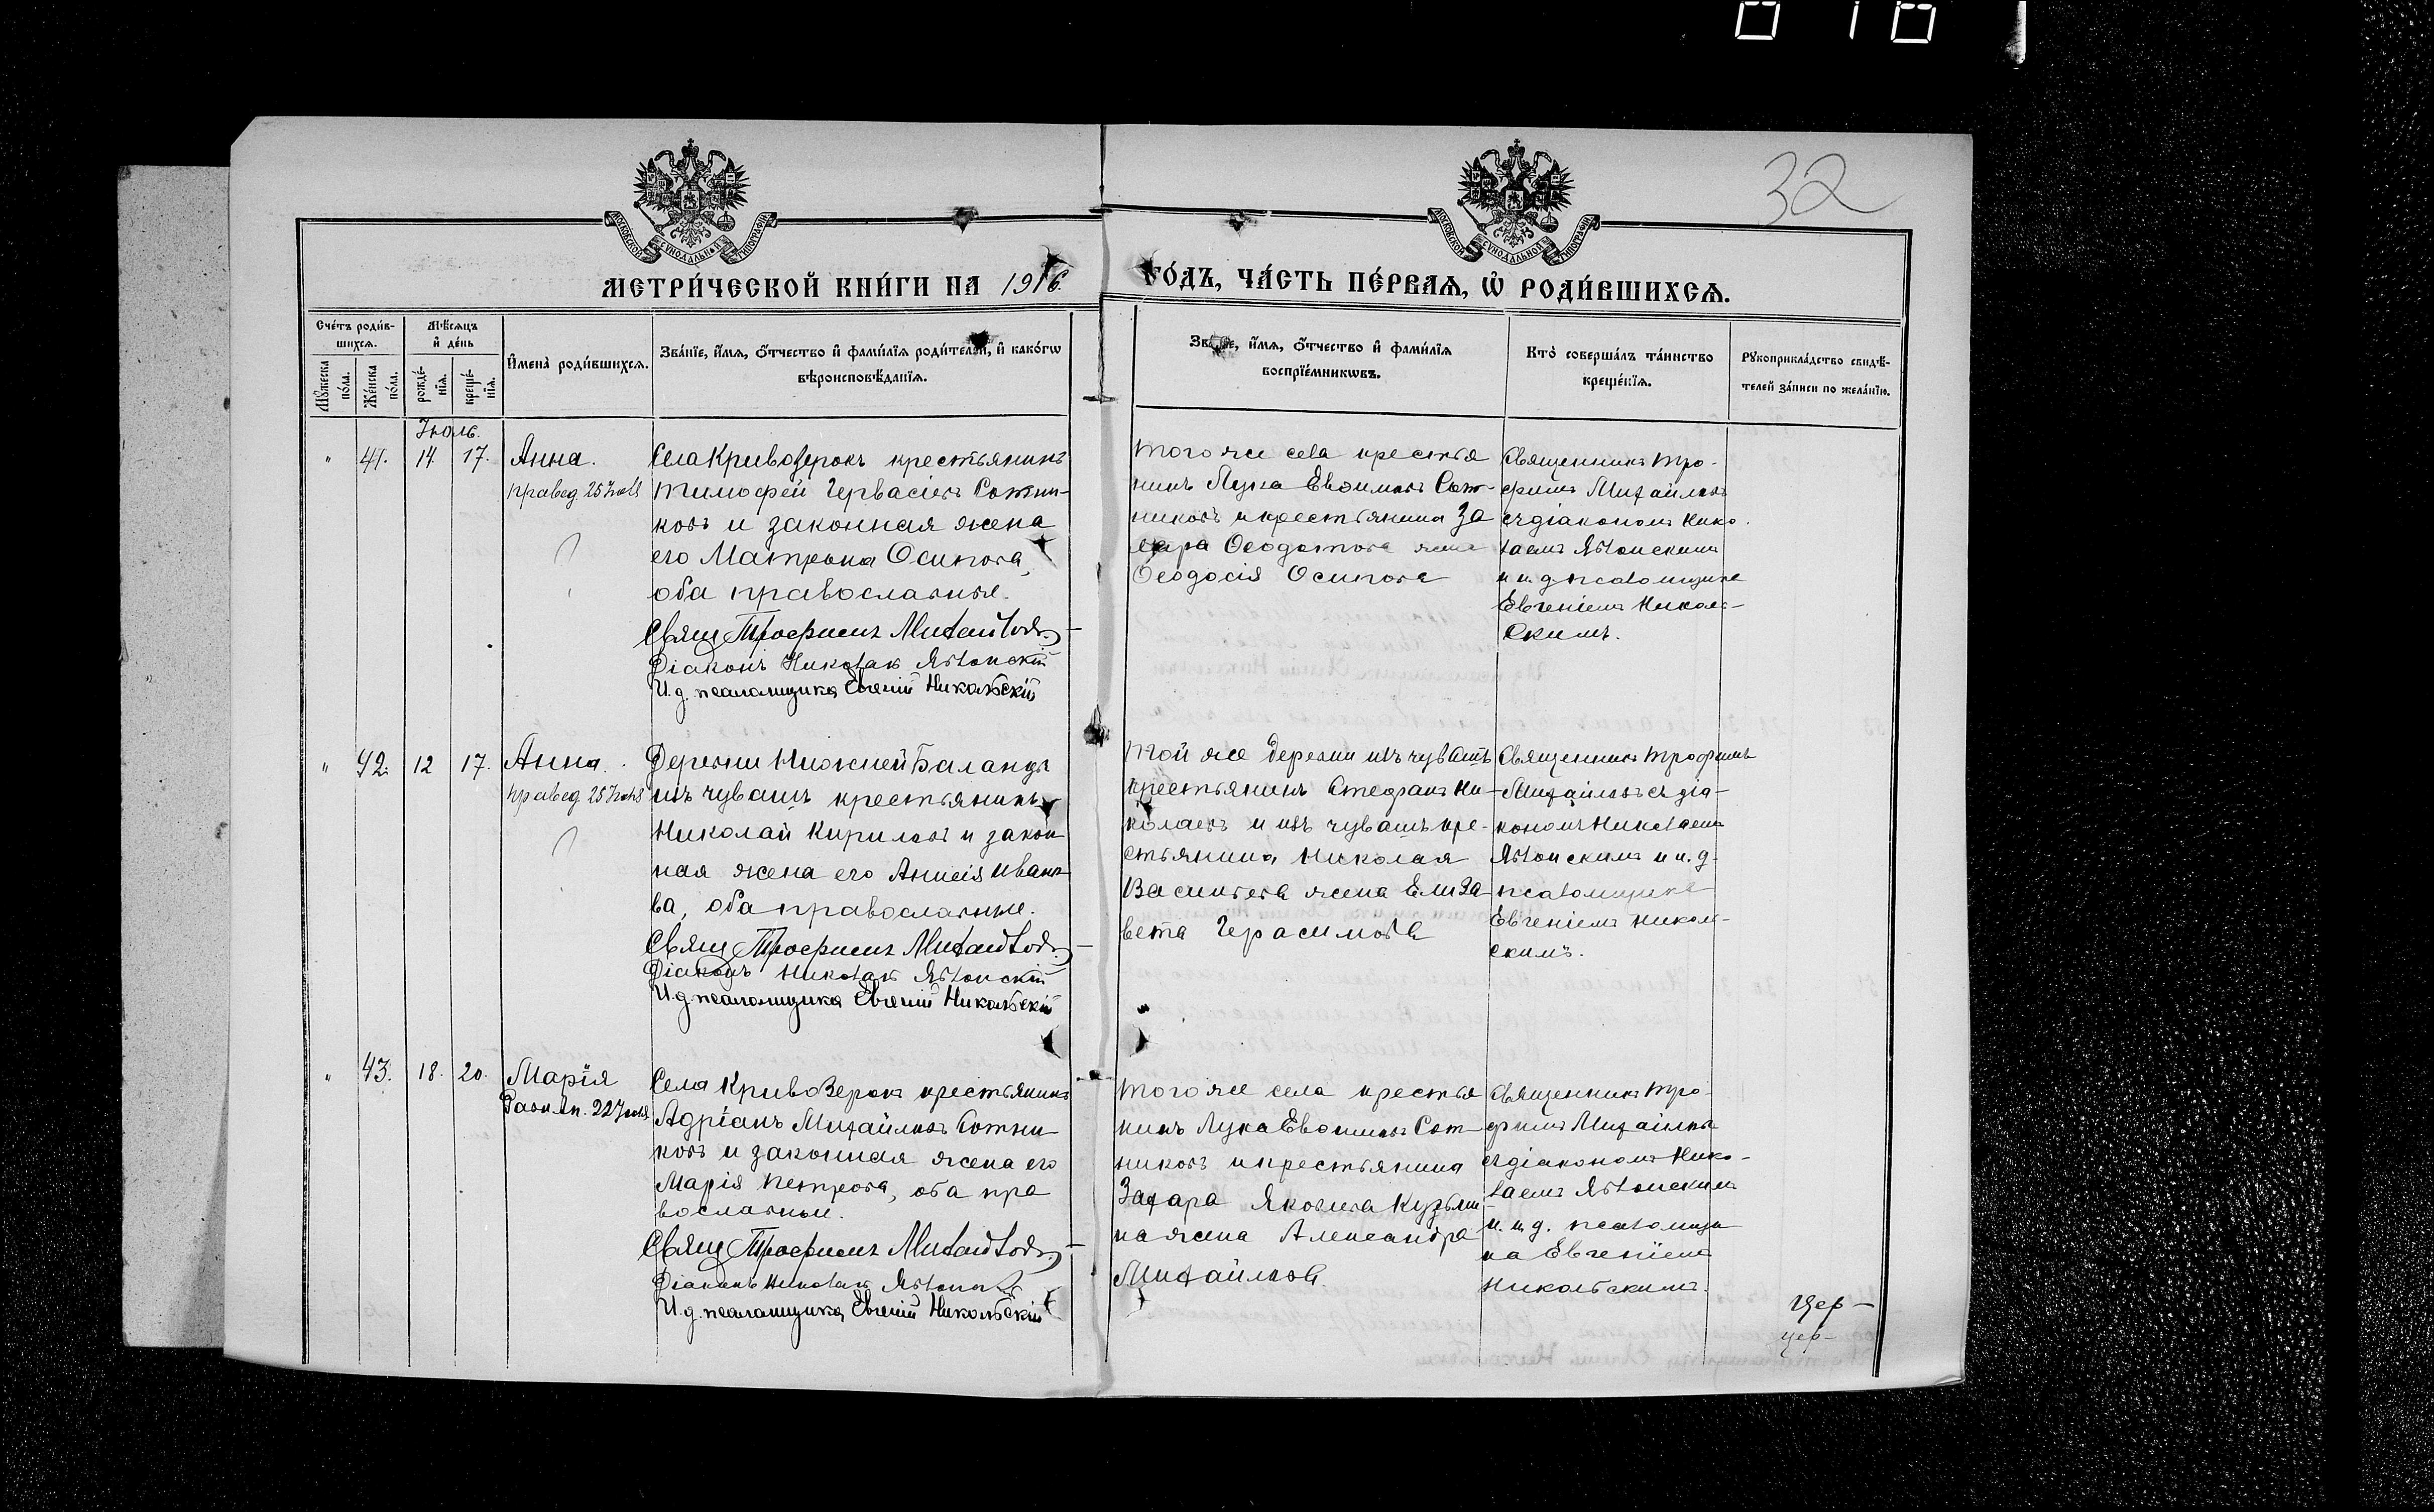 32
МЕТРИ́ЧЕСКОЙ КНИ́ГИ НА 1916
ГО́ДЪ, ЧА́СТЬ ПЕ́РВАѦ, Ѡ РОДИ́ВШИХСѦ.
Сче́тъ роди́в-
шихсѧ.
Мꙋ́жеска по́ла.
Же́нска по́ла.
Мѣ́сѧцъ
и де́нь
рожде́-
нїѧ.
креще́-
нїѧ.
Имена̀ роди́вшихсѧ.
Зва́нїе, и́мѧ, ѻ́тчество и фами́лїѧ роди́телей, и како́гѡ
вѣроисповѣ́данїѧ.
Зва́нїе, и́мѧ, ѻ́тчество и фами́лїѧ
воспрїе́мникѡвъ.
Кто̀ соверша́лъ та́инство
креще́нїѧ.
Рꙋкоприкла́дство свидѣ́-
телей за́писи по жела́нїю.
Іюль.
" 41. 14. 17. Анна.
правед. 25 Іюля
Села Кривозерокъ крестьянинъ
Тимофей Гервасіевъ Сотни-
ковъ и законная жена
его Матрона Осипова,
оба православные.
Свящ. Трофимъ Михайловъ
Діаконъ Николай Яблонскій
И.д. псаломщика Евгеній Никольскій
Того же села крестья
нинъ Лука Евфимовъ Сот-
никовъ и крестьянина За
хара Ѳеодотова жена
Ѳеодосія Осипова
Священникъ Тро-
фимъ Михайловъ
съ діакономъ Нико-
лаемъ Яблонскимъ
и и. д. псаломщика
Евгеніемъ Николь-
скимъ.
" 42. 12 17. Анна.
правед. 25 Іюля
Деревни Нижней Баланды
изъ чувашъ крестьянинъ
Николай Кириловъ и закон
ная жена его Анисія Ивано-
ва, оба православные.
Свящ. Трофимъ Михайловъ
Діаконъ Николай Яблонскій
И.д. псаломщика Евгеній Никольскій
Той же деревни изъ чувашъ
крестьянинъ Стефанъ Ни-
колаевъ и изъ чувашъ кре-
стьянина Николая
Васильева жена Елиза
вета Герасимова
Священникъ Трофимъ
Михайловъ съ діа-
кономъ Николаемъ
Яблонскимъ и и. д.
псаломщика
Евгеніемъ Николь-
скимъ.
" 43. 18. 20. Марія
22 Іюля
Села Кривозерокъ крестьянинъ
Адріанъ Михайловъ Сотни
ковъ и законная жена его
Марія Петрова, оба пра
вославные.
Свящ. Трофимъ Михайловъ
Діаконъ Николай Яблонскій
И.д. псаломщика Евгеній Никольскій
Того же села крестья
нинъ Лука Евфимовъ Сот
никовъ и крестьянина
Захара Яковлева Кузьми
на жена Александра
Михайлова
Священникъ Тро-
фимъ Михайловъ
съ діакономъ Нико-
лаемъ Яблонскимъ
и и. д. псаломщи
ка Евгеніемъ
Никольскимъ.